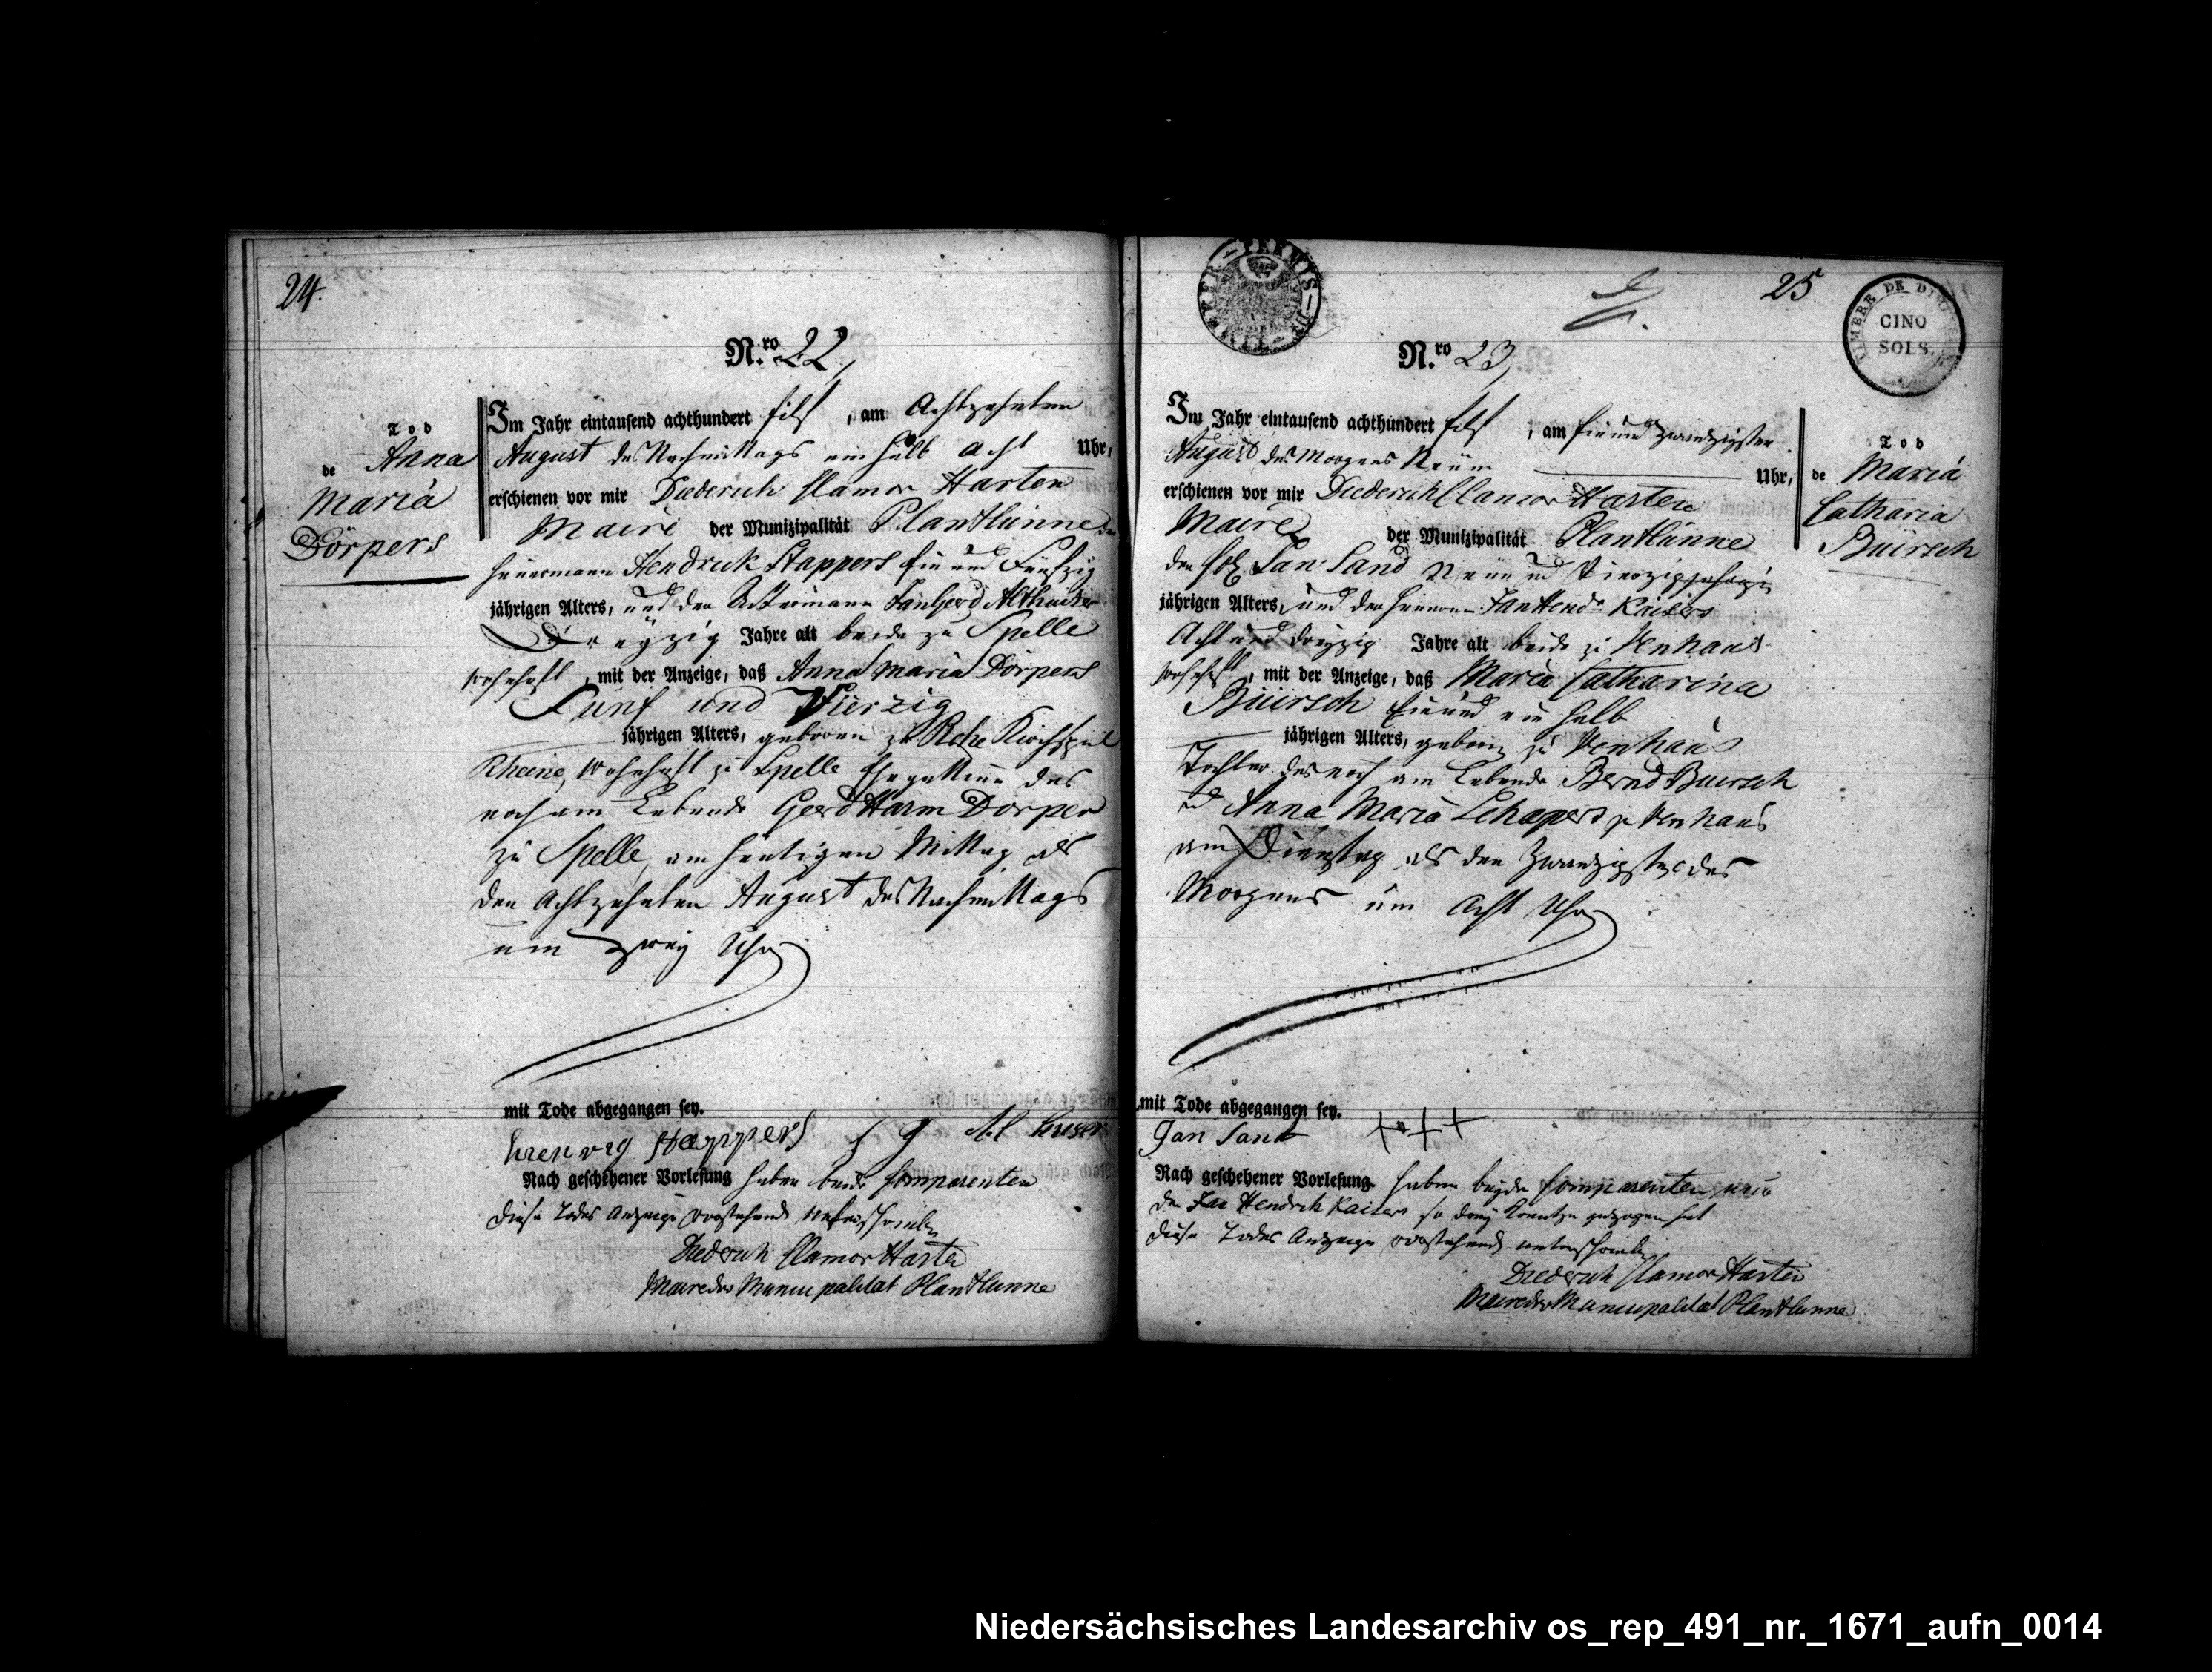 24.
N.ro 22,
Tod
de Anna
Maria
Dörpers
Im Jahr eintausend achthundert eilf, am Achtzehnten
August des Nachmittags ein halb Acht Uhr,
erschienen vor mir Diederich Clamor Harten
Maire der Munizipalität Plantlünne der
Heuermann Hendrick Stappers Ein und Fünfzig
jährigen Alters, und der Ackermann
Dreyzig Jahre alt beide zu Spelle
wohnhaft, mit der Anzeige, daß Anna Maria Dörpers
Fünf und Vierzig
jährigen Alters, geboren zu Kirchspiel
Rheine, wohnhaft zu Spelle Ehegattinn des
noch am Lebende Gerd Harm Dörper
zu Spelle, am heutigen Mittag als
den Achtzehnten August des Nachmittags
um zwey Uhr
mit Tode abgegangen sey.
Stappers
Nach geschehener Vorlesung haben beide Comparenten
diese Todes Anzeige vorstehend unterschrieben
Diederich Clamor Harten
Maire der Municipalität Plantlunne
25
TIMBRE DE DIM
CINQ
SOLS.
N.ro 23,
Im Jahr eintausend achthundert eilf, am Ein und zwandzigsten
August des Morgens Neün Uhr,
erschienen vor mir Diederich Clamor Harten
Maire der Munizipalität Plantlünne
der Jan Sand Neün und Vierzig
jährigen Alters, und der Jan Hendr. Kaisers
Acht und dreyzig Jahre alt beide zu Venhaus
wohnhaft, mit der Anzeige, daß Maria Catharina
Büirsch Ein und ein halb
jährigen Alters, geboren zu Venhaus
Tochter des noch am Lebende Bernd Buirsch
und Anna Maria Schapers zu Venhaus
am Dienstag als den Zwanzigsten des
Morgens um Acht Uhr
Tod
de Maria
Catharia
Büirsch
mit Tode abgegangen sey.
Jan Sant +++
Nach geschehener Vorlesung haben beyde Comparenten
der Jan Hendrik Kaisers so drey Kreutze gezogen hat
diese Todes Anzeige vorstehend unterschrieben
Diederich Clamor Harten
Maire der Municipalität Plantlunne
Niedersächsisches Landesarchiv os_rep_491_nr._1671_aufn_0014